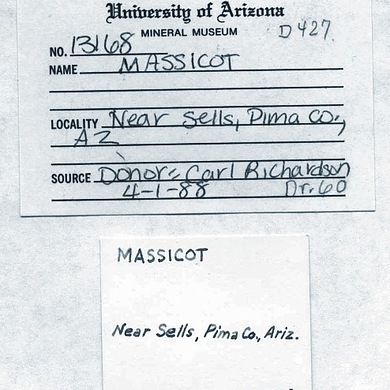 University of Arizona
MINERAL MUSEUM
D 427
NO. 13168
NAME MASSICOT
LOCALITY Near Sells, Pima Co.,
AZ
SOURCE Donor: Carl Richardson
4-1-88 Dr. 60
MASSICOT
Near Sells, Pima Co., Ariz.